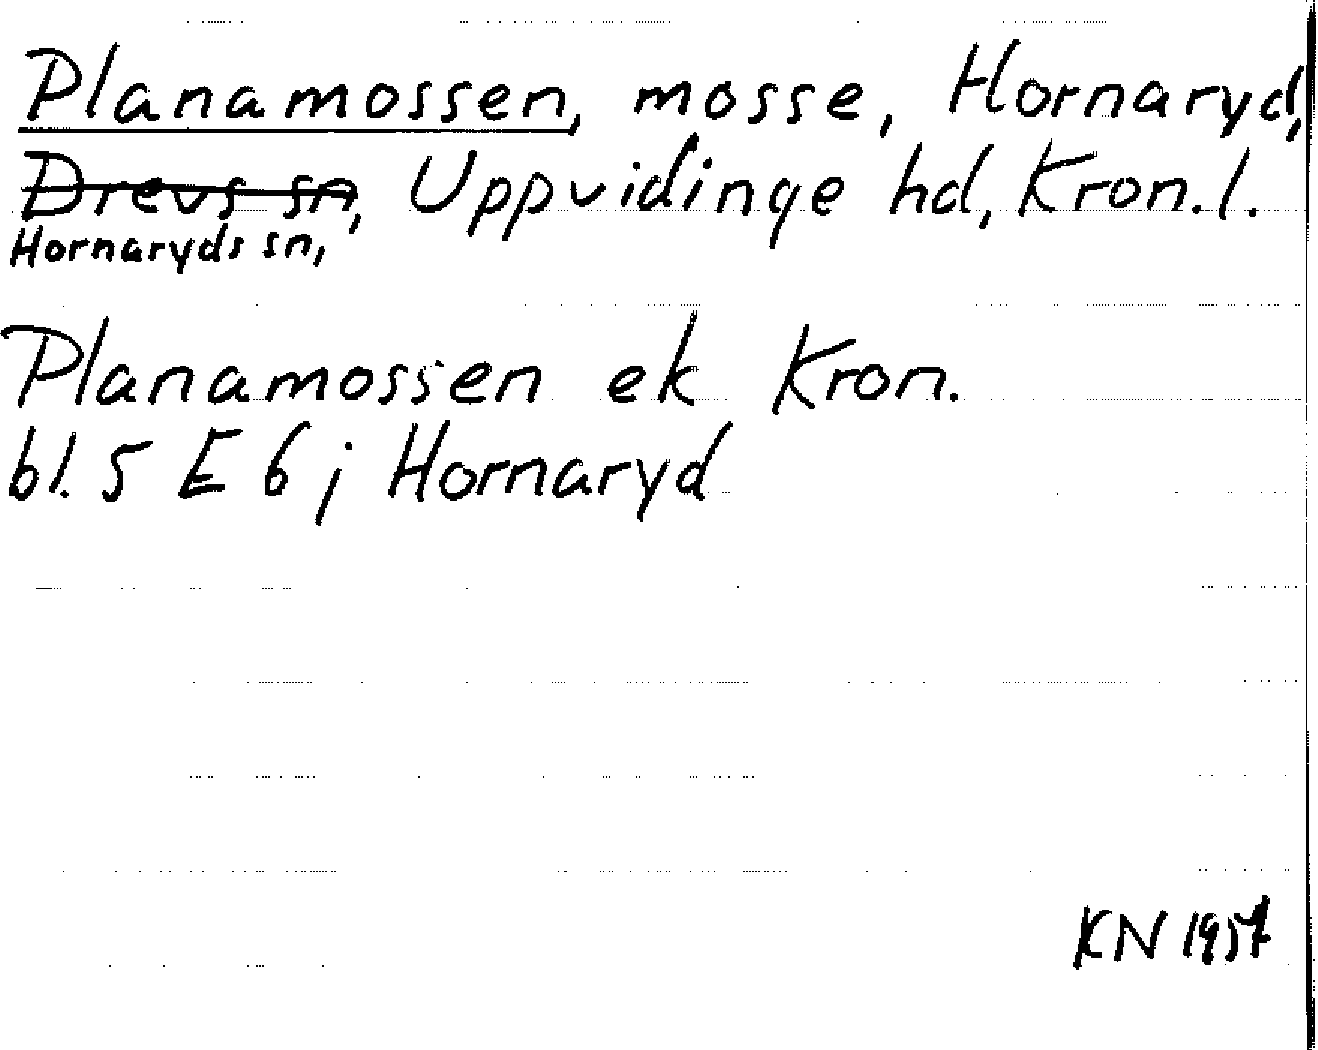 Planamossen, mosse, Hornaryd,
Drevs sn, Uppvidinge hd, Kron. l.
Hornaryds sn,
Planamossen ek Kron.
bl. 5 E 6 j Hornaryd
KN 1957